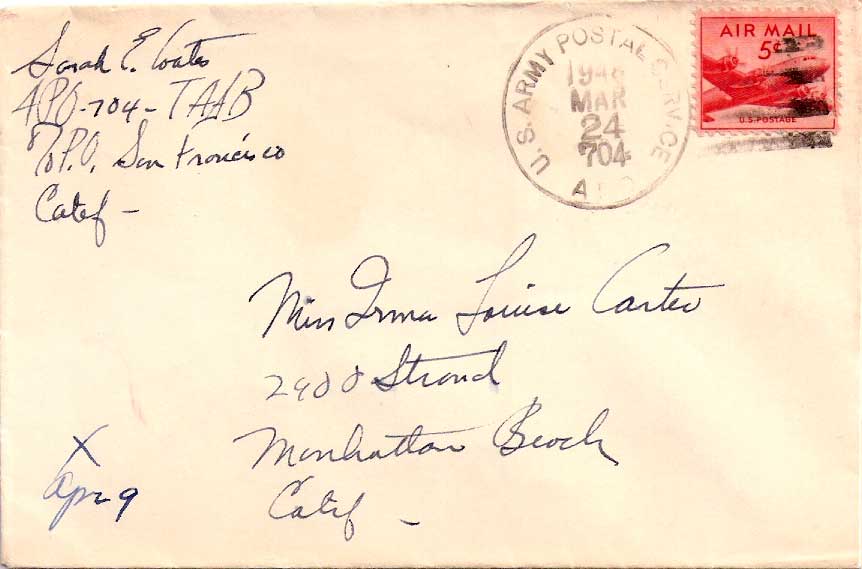 Sarah E. Coates
APO-704-TAAB
% P.O. San Francisco
Calif -
U.S. ARMY POSTAL SERVICE
194
MAR
24
704
A.P.O.
AIR MAIL
5¢
U.S. POSTAGE
Miss Irma Louise Carter
2900 Strand
Manhattan Beach
Calif -
X
Apr 9